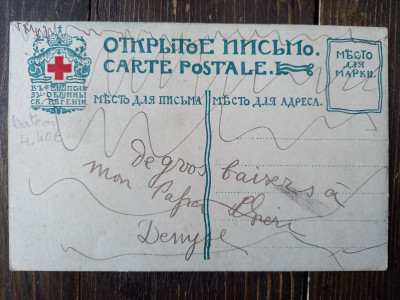 ОТКРЫТОЕ ПИСЬМО.
CARTE POSTALE.
МѢСТО
ДЛЯ
МАРКИ.
ВЪ ПОЛЬ
ЗУ ОБЩИНЫ
СВ. ЕВГЕНІИ
МѢСТО ДЛЯ ПИСЬМА
МѢСТО ДЛЯ АДРЕСА.
4,40€
de gros baisers à
mon Papa Chéri
Denyse